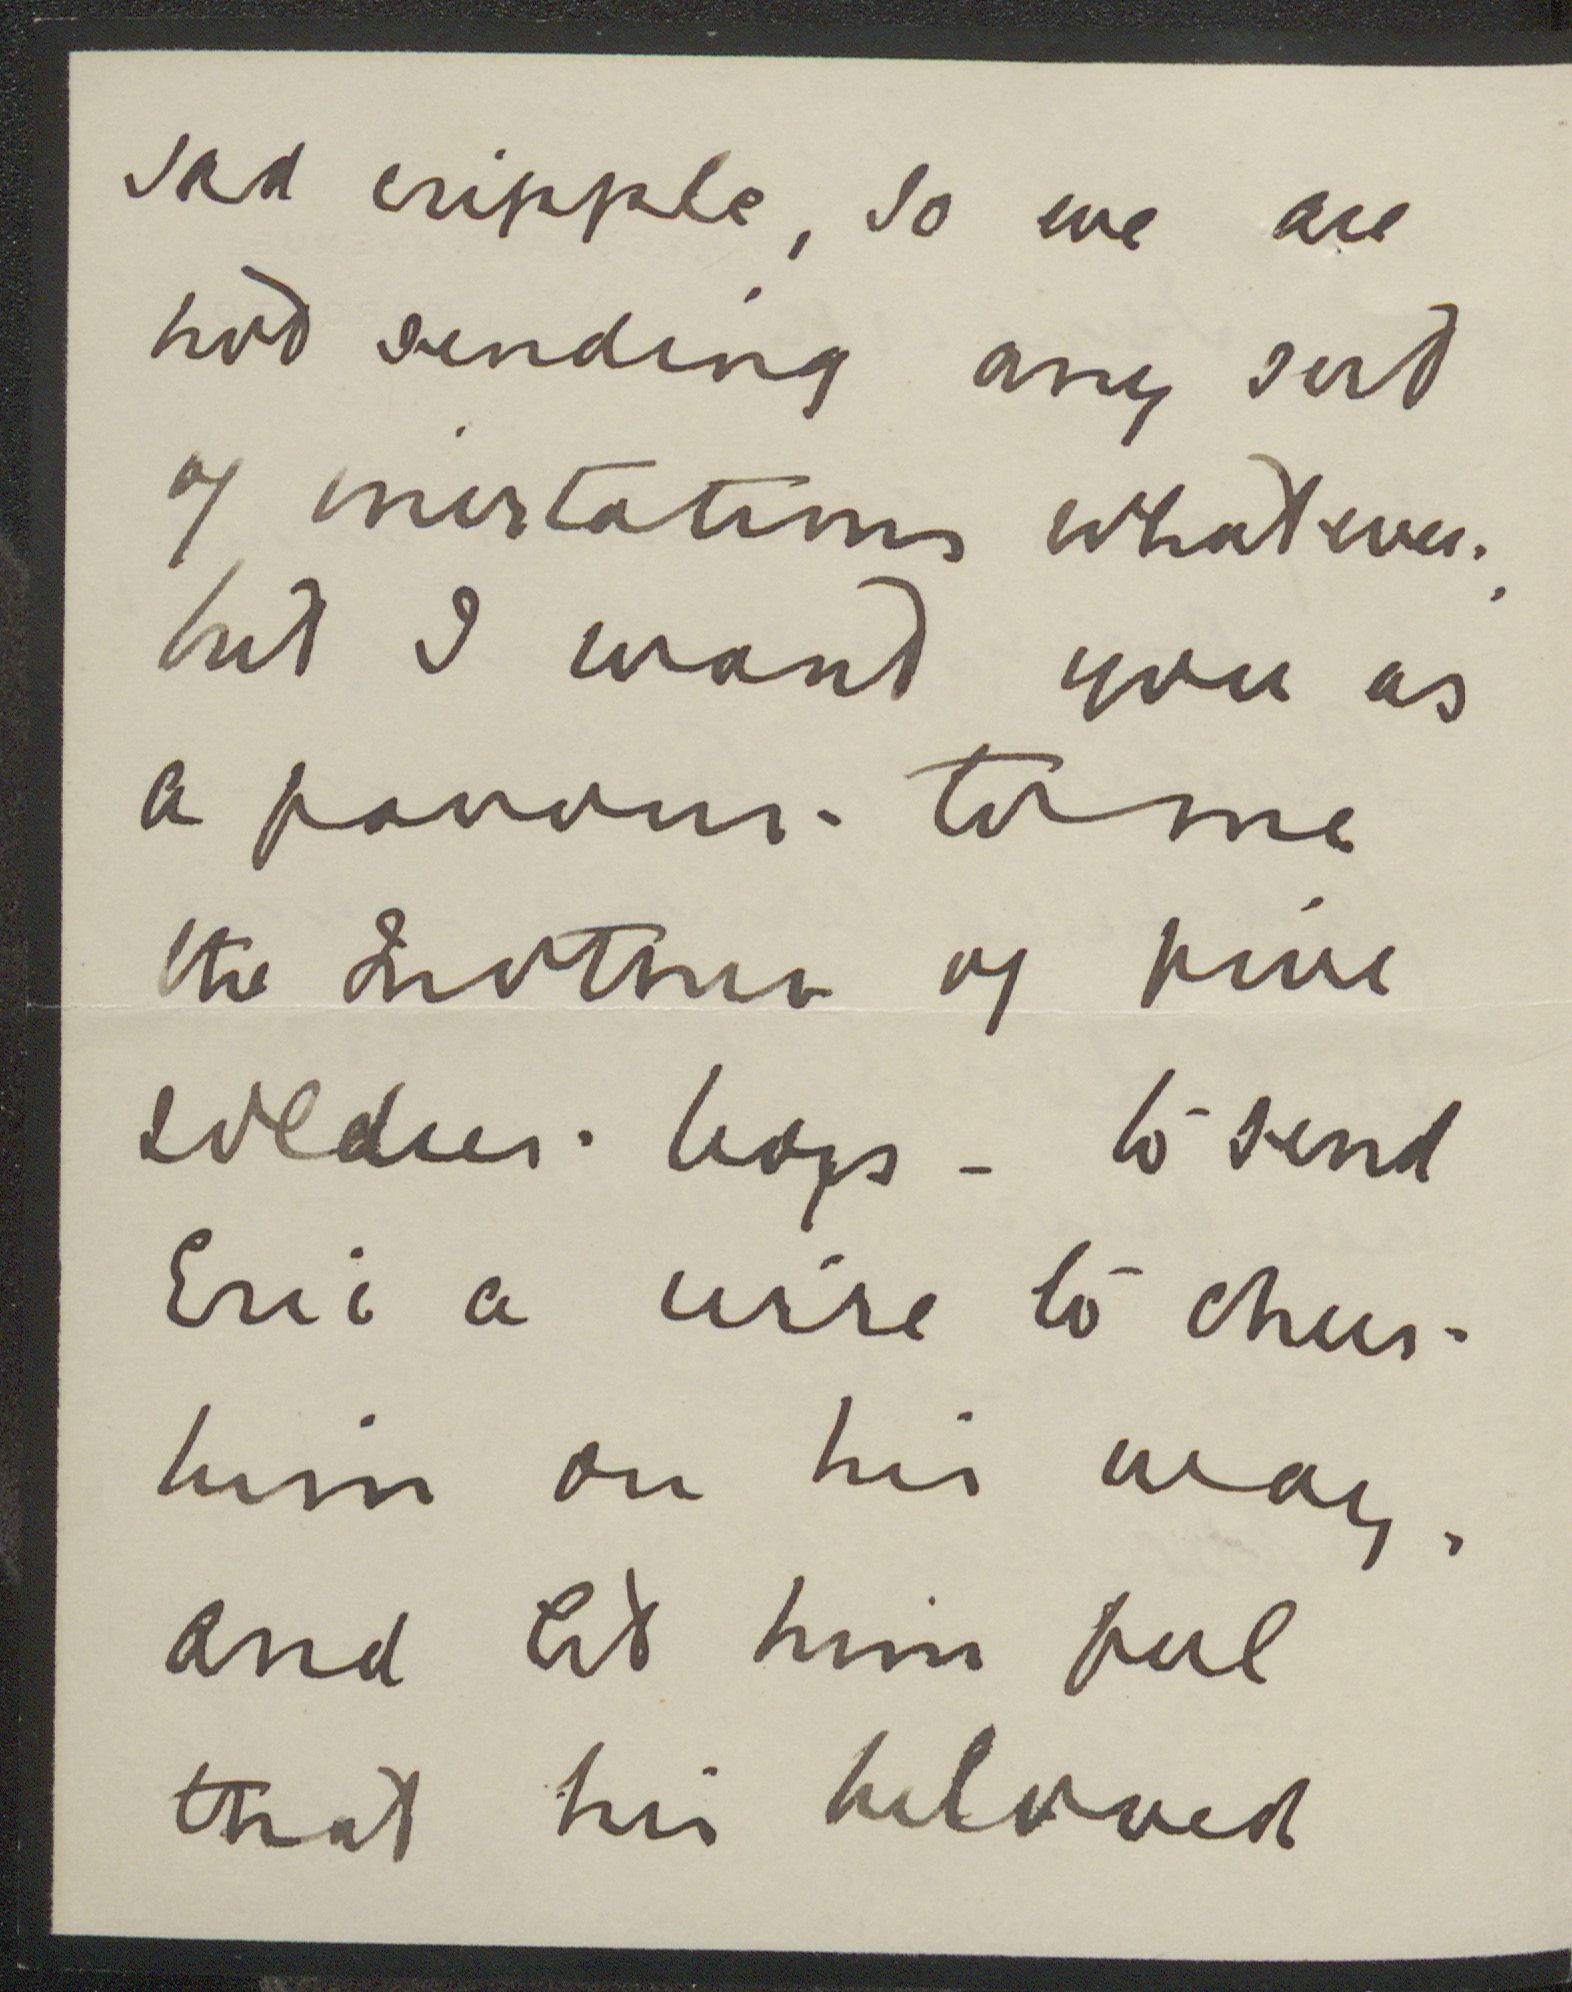 sad cripple, so we are
not sending any sort
of invitations whatever,
but I want you as
a favour - to me
the Mother of five
soldier - boys - to send
Eric a wire to cheer
him on his way,
and let him feel
that his beloved